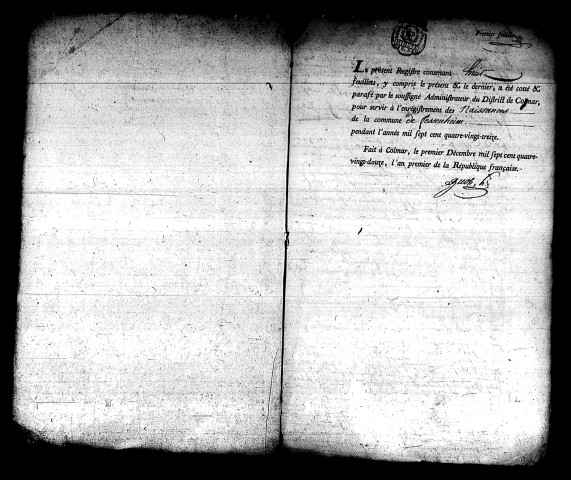 Premier feuillet
LE présent Registre contenant huit
feuillets, y compris le présent & le dernier, a été coté &
parafé par le soussigné Administrateur du District de Colmar,
pour servir à l'enregistrement des Naissances
de la commune de Jessenheim
pendant l'année mil sept cent quatre-vingt-treize.
Fait à Colmar, le premier Décembre mil sept cent quatre-
vingt-douze, l'an premier de la République française.